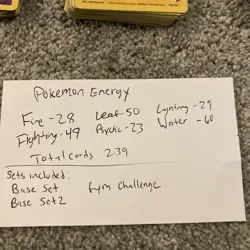 Pokemon Energy
Fire - 28 Leaf - 50 Lighting - 29
Fighting - 49 Psychic - 23 Water - 60
Total cards 239
Sets included:
Base Set Gym Challenge
Base Set 2